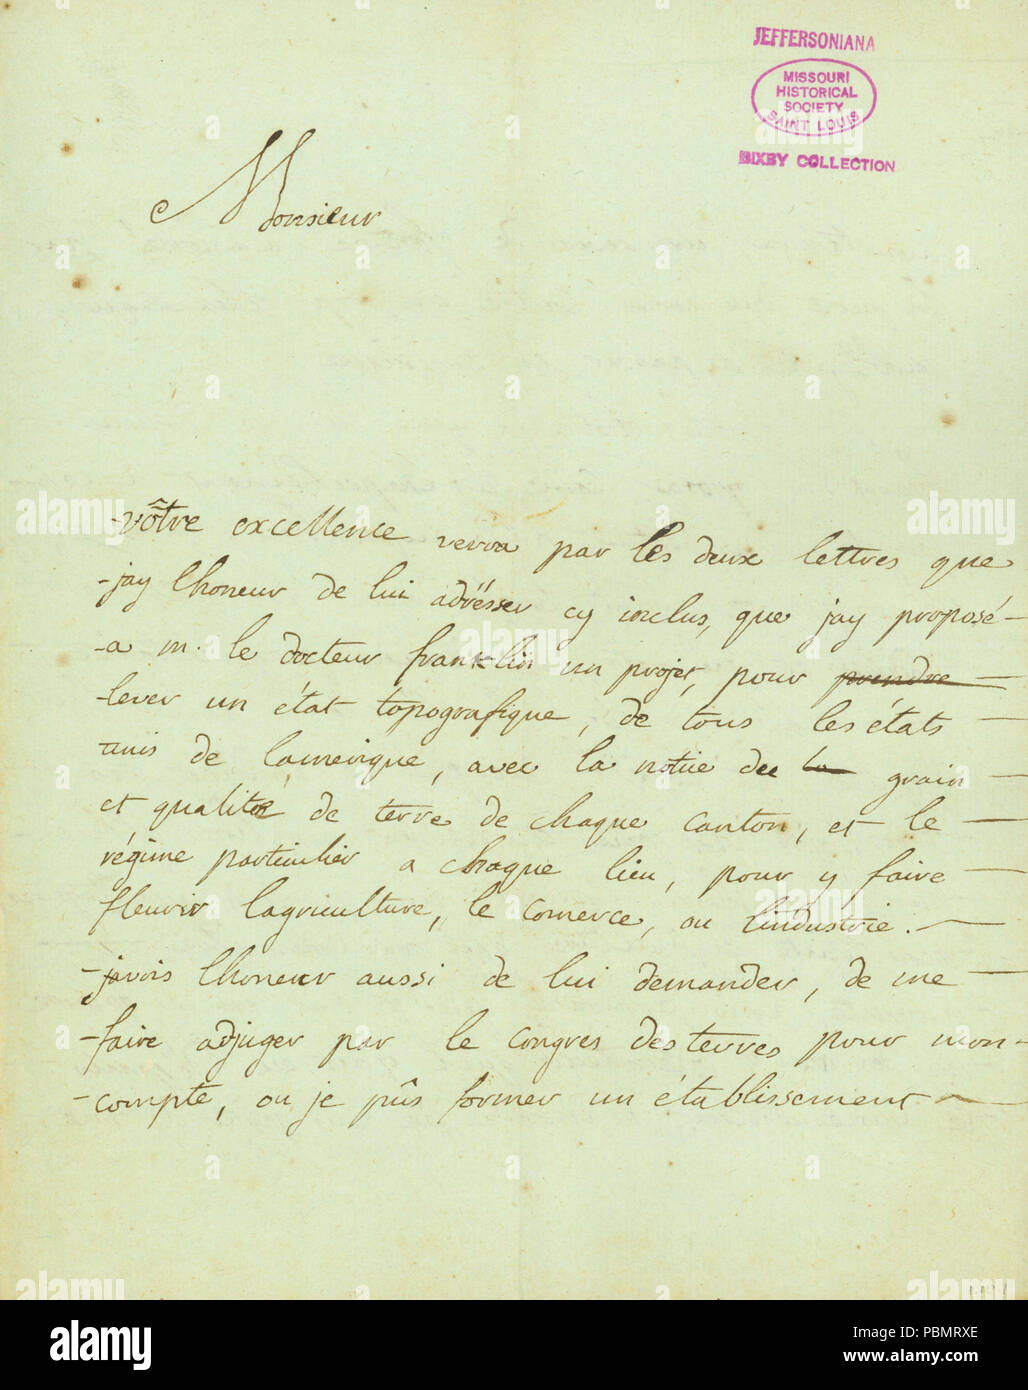 JEFFERSONIANA
MISSOURI
HISTORICAL
SOCIETY
SAINT LOUIS
BIXBY COLLECTION
Monsieur
-vôtre excellence verra par les deux lettres que
-jay lhoneur de lui adrësser cy inclus, que jay proposé-
-a m. le docteur franklin un projet, pour prendre
-lever un état topografique, de tous les états
unis de lamerique, avec la notice de la grain
et qualité de terre de chaque canton, et le
régime particulier a chaque lieu, pour y faire
fleurir lagriculture, le comerce, ou lindustrie.
-javois lhoneur aussi de lui demander, de me
-faire adjuger par le congres des terres pour mon-
-compte, ou je pûs former un établissement
alamy
Image ID: PBMRXE
www.alamy.com